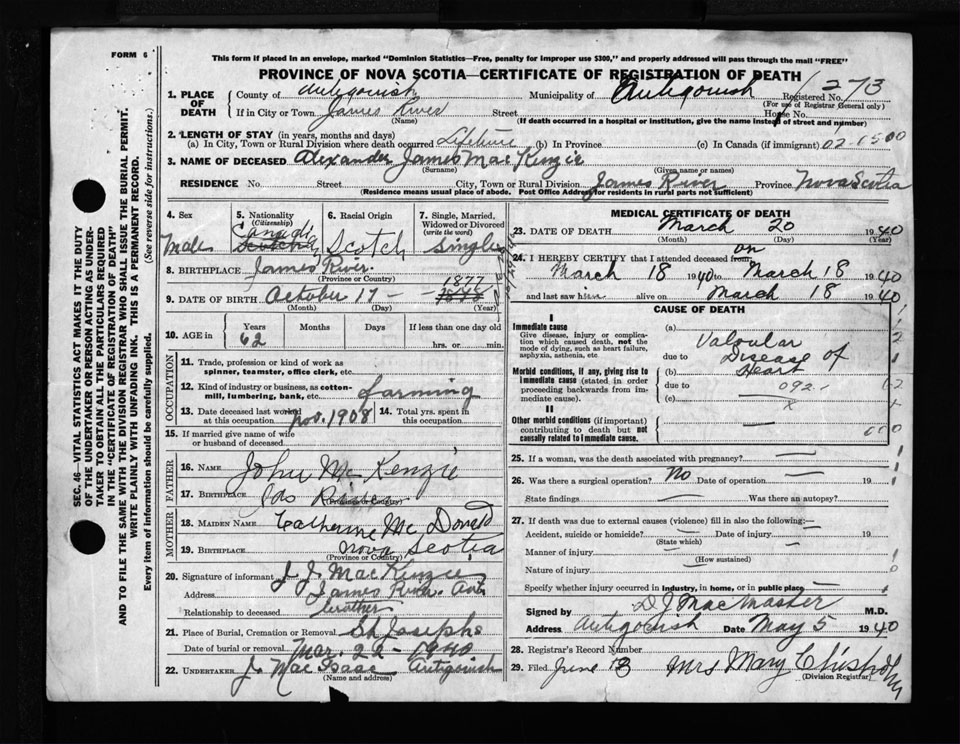 FORM 6
This form if placed in an envelope, marked "Dominion Statistics—Free, penalty for improper use $300," and properly addressed will pass through the mail "FREE"
PROVINCE OF NOVA SCOTIA—CERTIFICATE OF REGISTRATION OF DEATH
1. PLACE OF DEATH
County of Antigonish Municipality of Antigonish Registered No. 273
(For use of Registrar General only)
If in City or Town James River Street House No.
(Name) (If death occurred in a hospital or institution, give the name instead of street and number)
2. LENGTH OF STAY (in years, months and days)
(a) In City, Town or Rural Division where death occurred Lifetime (b) In Province (c) In Canada (if immigrant) 02-1500
3. NAME OF DECEASED Alexander James MacKenzie
(Surname) (Given name or names)
RESIDENCE No. Street City, Town or Rural Division James River Province Nova Scotia
(Residence means usual place of abode. Post Office Address for residents in rural parts not sufficient)
4. Sex Male
5. Nationality (Citizenship) Canadian Scotch
6. Racial Origin Scotch
7. Single, Married, Widowed or Divorced (write the word) Single
8. BIRTHPLACE James River.
(Province or Country)
9. DATE OF BIRTH October 17 - 1877
(Month) (Day) (Year)
10. AGE in Years Months Days If less than one day old
62 hrs. or min.
OCCUPATION
11. Trade, profession or kind of work as spinner, teamster, office clerk, etc.
12. Kind of industry or business, as cotton-mill, lumbering, bank, etc. farming
13. Date deceased last worked at this occupation Nov. 1908 14. Total yrs. spent in this occupation
15. If married give name of wife or husband of deceased
FATHER
16. Name John McKenzie
17. Birthplace
(Province or Country)
MOTHER
18. Maiden Name Catherine McDonald
19. Birthplace Nova Scotia
(Province or Country)
20. Signature of informant J. J. MacKenzie
Address James River. Ant.
Relationship to deceased brother
21. Place of Burial, Cremation or Removal St Josephs
Date of burial or removal Mar. 22 - 1940
22. Undertaker J. MacIsaac Antigonish
(Name and address)
MEDICAL CERTIFICATE OF DEATH
23. DATE OF DEATH March 20 1940
(Month) (Day) (Year)
24. I HEREBY CERTIFY that I attended deceased from on
March 18 1940 to March 18 1940
and last saw him alive on March 18 1940
CAUSE OF DEATH
I
Immediate cause
Give disease, injury or complication which caused death, not the mode of dying, such as heart failure, asphyxia, asthenia, etc
(a) Valvular
due to Disease of
Morbid conditions, if any, giving rise to immediate cause (stated in order proceeding backwards from immediate cause).
(b) Heart
due to 092.
(c)
II
Other morbid conditions (if important) contributing to death but not causally related to immediate cause.
25. If a woman, was the death associated with pregnancy?
26. Was there a surgical operation? No Date of operation 19
State findings Was there an autopsy?
27. If death was due to external causes (violence) fill in also the following:
Accident, suicide or homicide? Date of injury 19
(State which)
Manner of injury
(How sustained)
Nature of injury
Specify whether injury occurred in industry, in home, or in public place
Signed by D J MacMaster M.D.
Address Antigonish Date May 5 1940
28. Registrar's Record Number
29. Filed June Mrs Mary Chisholm
(Division Registrar)
SEC. 46—VITAL STATISTICS ACT MAKES IT THE DUTY OF THE UNDERTAKER OR PERSON ACTING AS UNDERTAKER TO OBTAIN ALL THE PARTICULARS REQUIRED IN THE "CERTIFICATE OF REGISTRATION OF DEATH"
AND TO FILE THE SAME WITH THE DIVISION REGISTRAR WHO SHALL ISSUE THE BURIAL PERMIT.
WRITE PLAINLY WITH UNFADING INK. THIS IS A PERMANENT RECORD.
Every item of information should be carefully supplied. (See reverse side for instructions.)